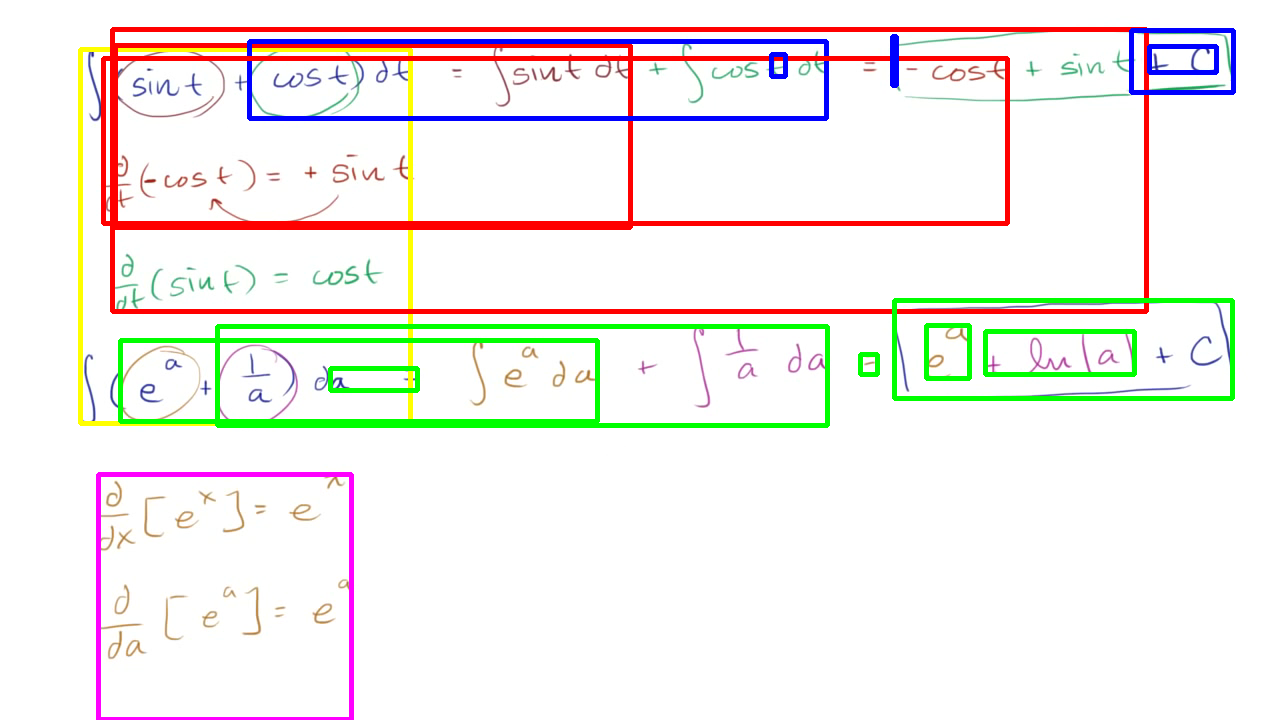 ∫(sin t + cos t) dt = ∫sin t dt + ∫cos t dt = - cos t + sin t + C
∂/∂t (-cos t) = + sin t
∂/∂t (sin t) = cos t
∫(e^a + 1/a) da = ∫e^a da + ∫1/a da = e^a + ln|a| + C
∂/∂x [e^x] = e^x
∂/∂a [e^a] = e^a